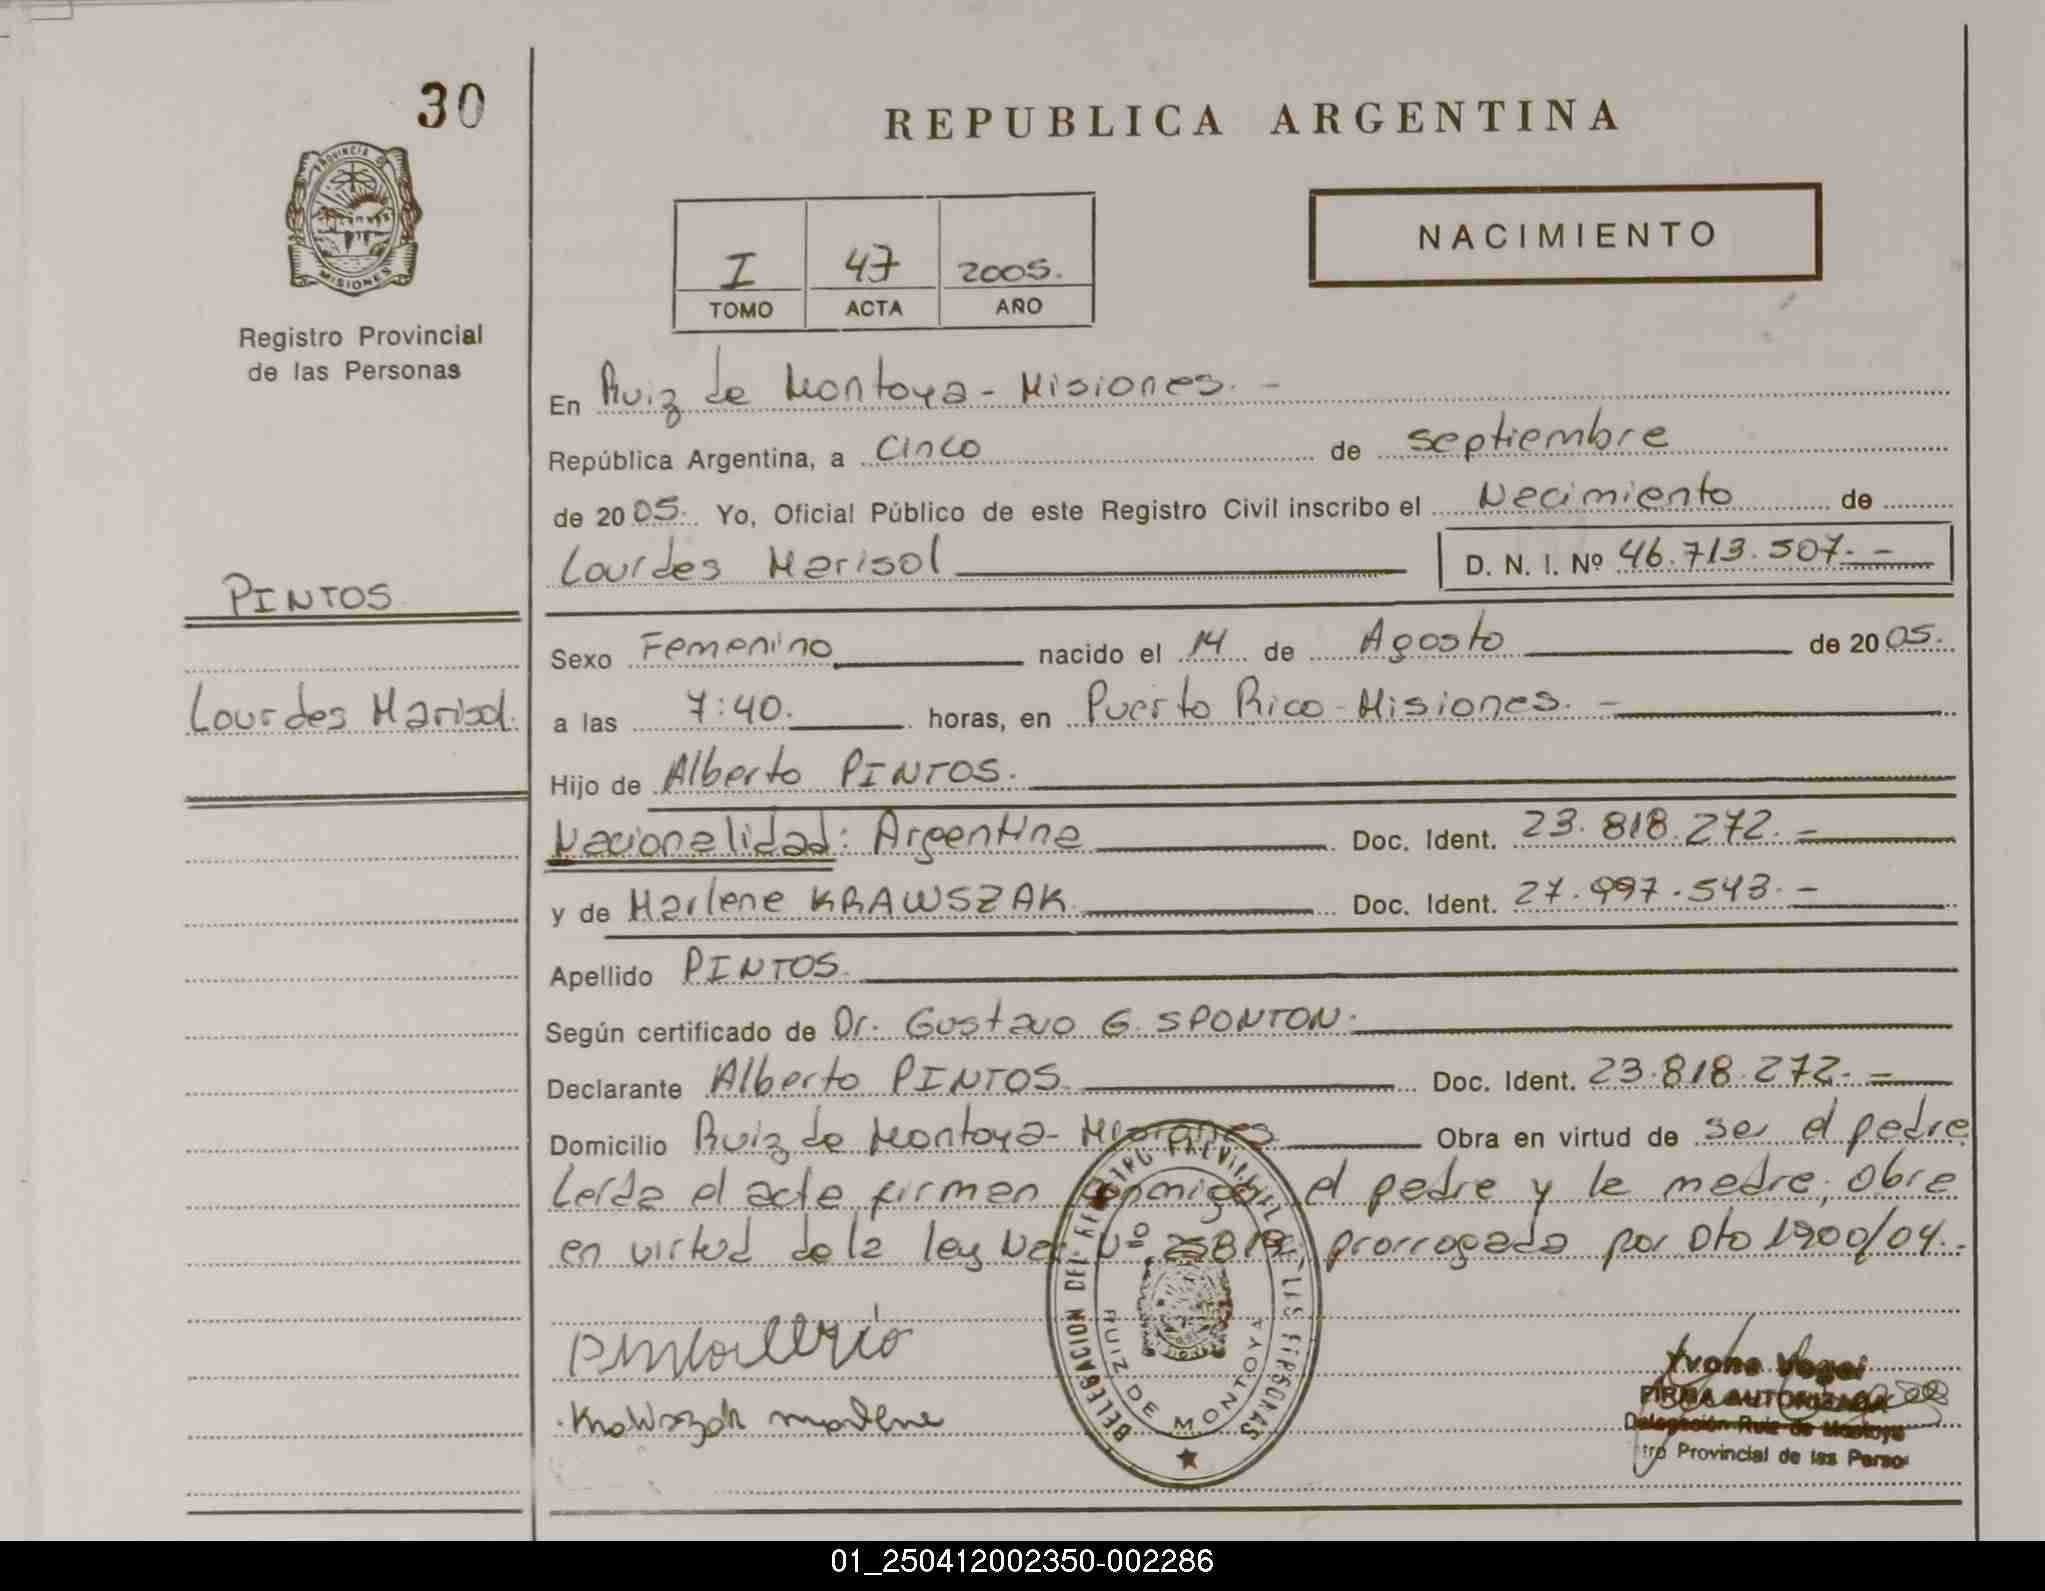 30
REPUBLICA ARGENTINA
PROVINCIA DE
MISIONES
Registro Provincial
de las Personas
NACIMIENTO
I 47 2005.
TOMO ACTA AÑO
En Ruiz de Montoya - Misiones. -
República Argentina, a Cinco de septiembre
de 2005. Yo, Oficial Público de este Registro Civil inscribo el Nacimiento de
Lourdes Marisol D. N. I. Nº 46.713.507. -
PINTOS
Sexo Femenino nacido el 14 de Agosto de 2005.
Lourdes Marisol.
a las 7:40. horas, en Puerto Rico - Misiones. -
Hijo de Alberto PINTOS.
Nacionalidad: Argentina Doc. Ident. 23.818.272. -
y de Marlene KRAWSZAK Doc. Ident. 27.997.543. -
Apellido PINTOS.
Según certificado de Dr. Gustavo G. SPONTON.
Declarante Alberto PINTOS. Doc. Ident. 23.818.272. -
Domicilio Ruiz de Montoya - Misiones Obra en virtud de ser el padre
Leída el acta firman conmigo el padre y la madre; Obra
en virtud de la ley Nac. Nº 25819 prorrogada por Dto 1900/04.
DELEGACION DEL REGISTRO PROVINCIAL DE LAS PERSONAS
RUIZ DE MONTOYA
Krawszak Marlene
Yvone Vogel
FIRMA AUTORIZADA
Delegación Ruiz de Montoya
tro Provincial de las Perso
01_250412002350-002286